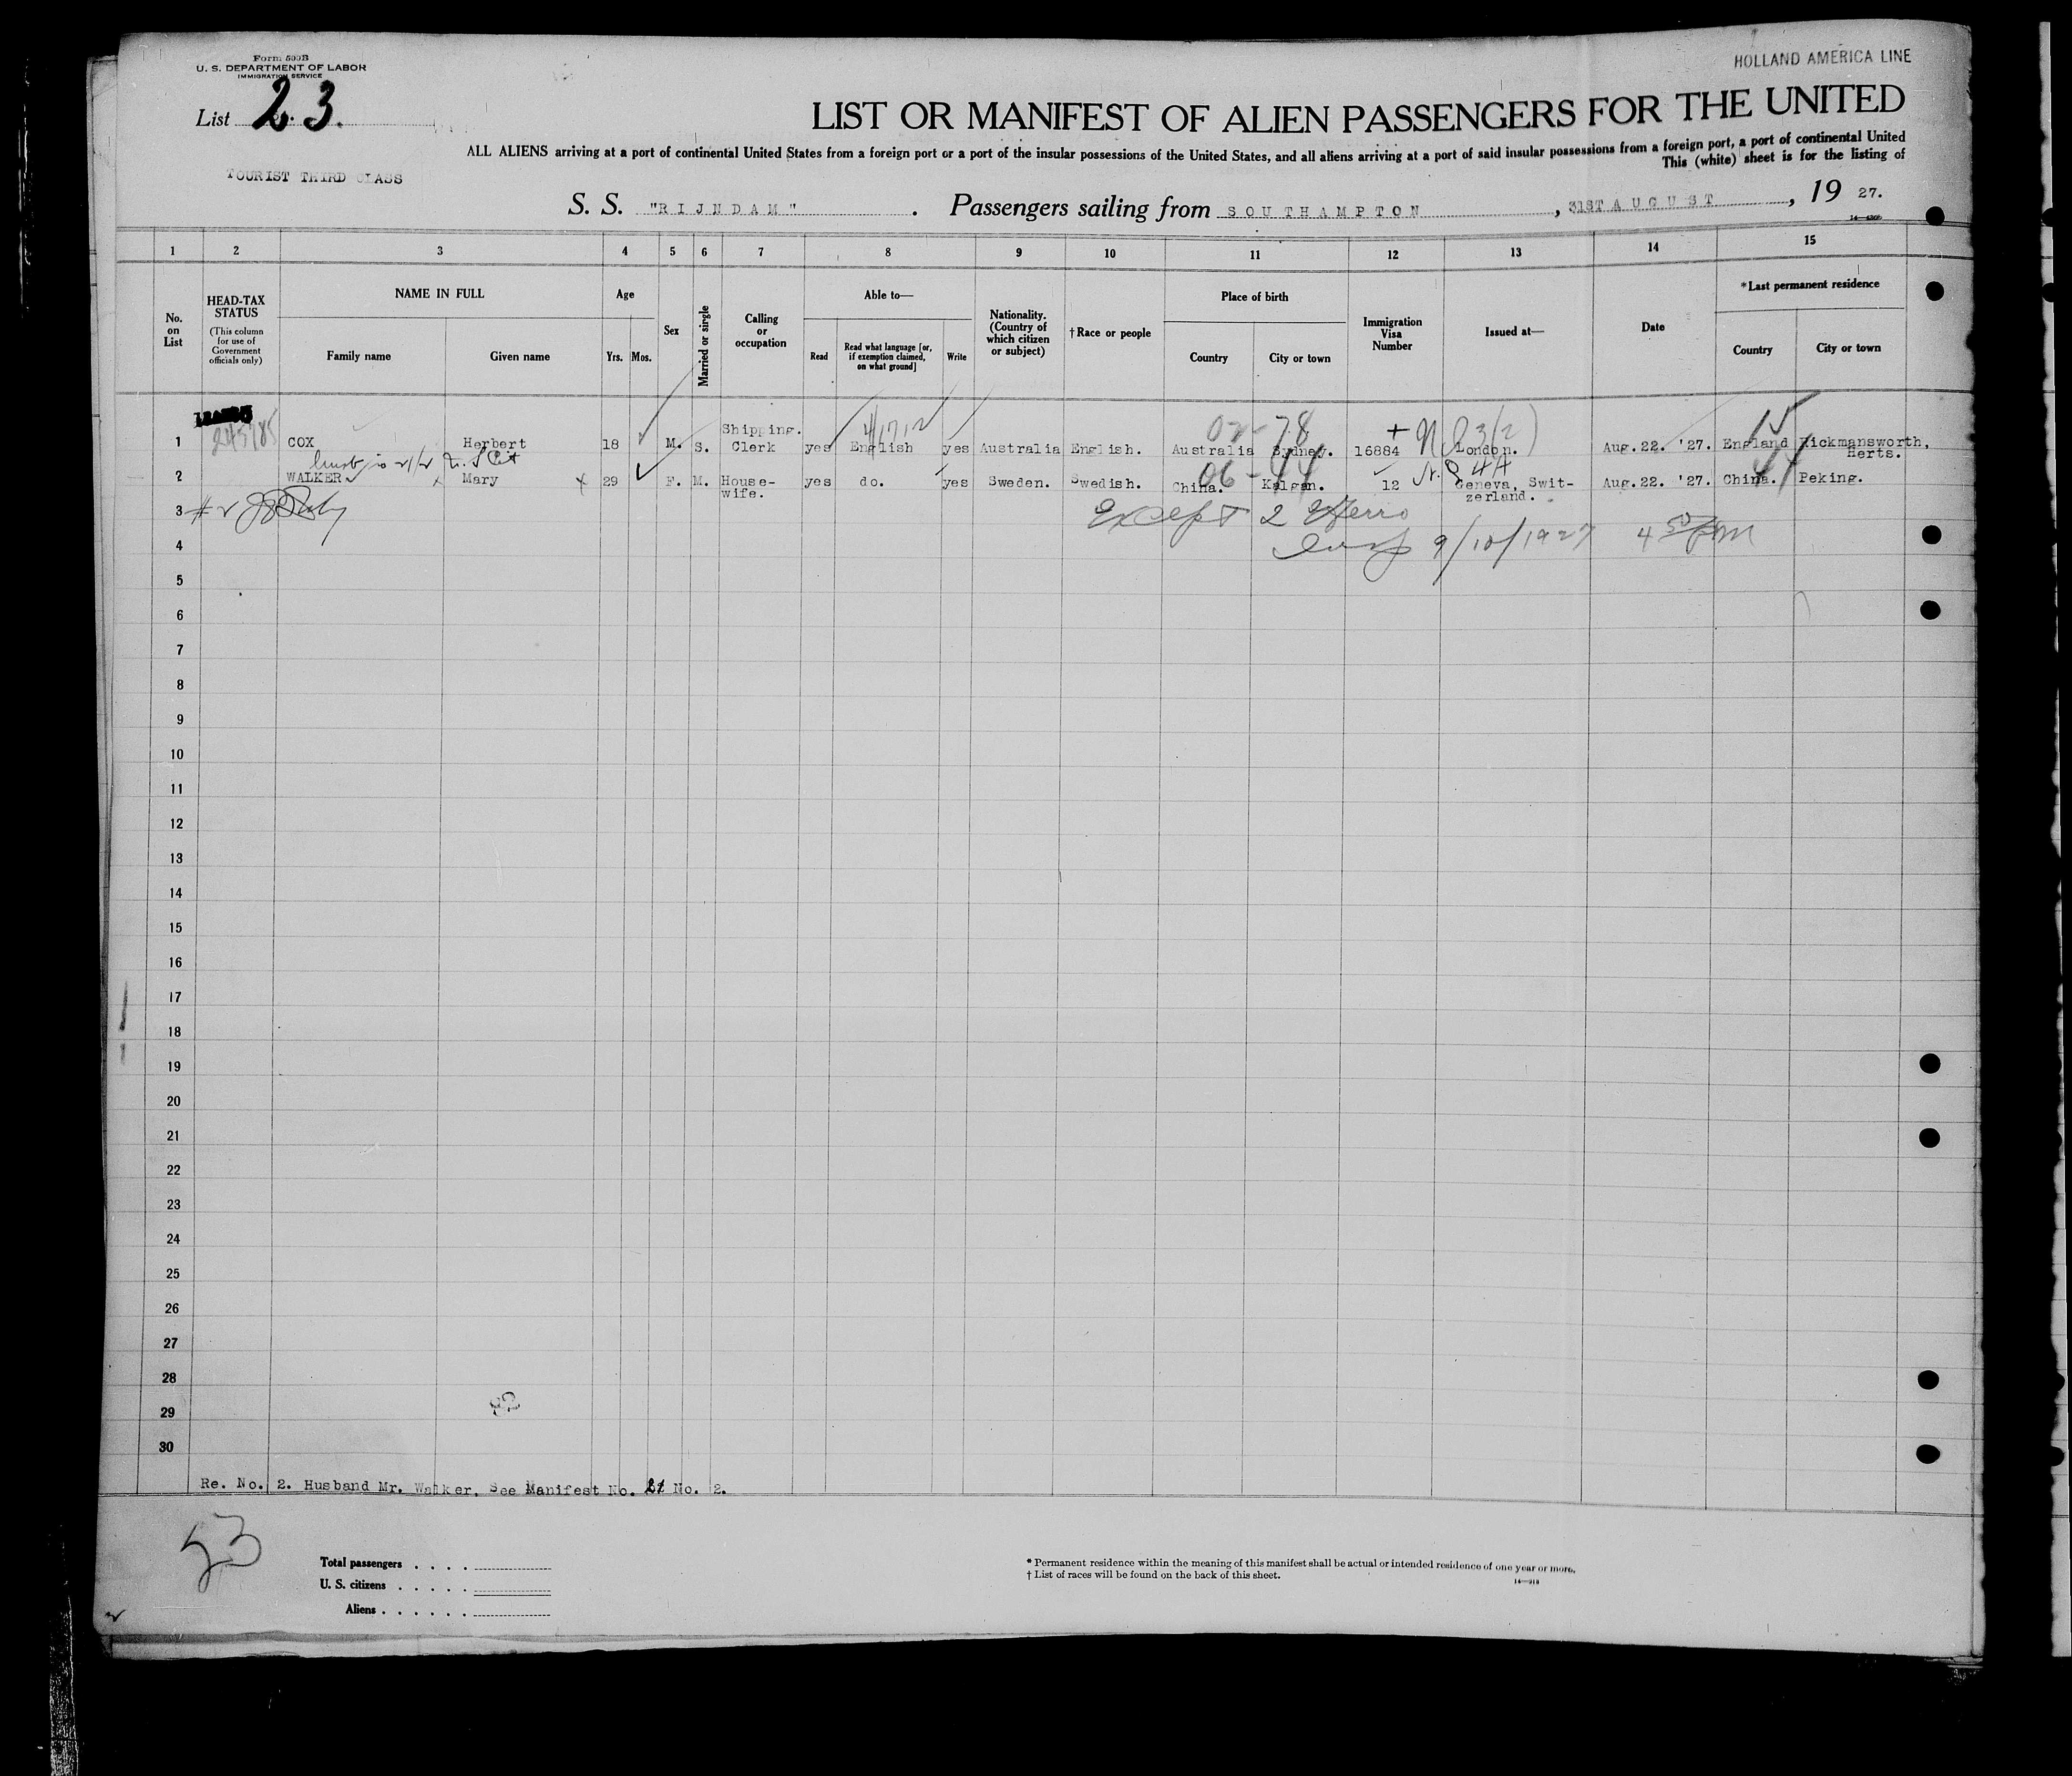 Form 500B
U. S. DEPARTMENT OF LABOR
IMMIGRATION SERVICE
HOLLAND AMERICA LINE
List 23.
LIST OR MANIFEST OF ALIEN PASSENGERS FOR THE UNITED
ALL ALIENS arriving at a port of continental United States from a foreign port or a port of the insular possessions of the United States, and all aliens arriving at a port of said insular possessions from a foreign port, a port of continental United
This (white) sheet is for the listing of
TOURIST THIRD CLASS
S. S. "RIJNDAM" . Passengers sailing from SOUTHAMPTON , 31ST AUGUST , 19 27.
1 2 3 4 5 6 7 8 9 10 11 12 13 14 15
No. on List
HEAD-TAX STATUS
(This column for use of Government officials only)
NAME IN FULL
Family name
Given name
Age
Yrs.
Mos.
Sex
Married or single
Calling or occupation
Able to—
Read
Read what language [or, if exemption claimed, on what ground]
Write
Nationality. (Country of which citizen or subject)
†Race or people
Place of birth
Country
City or town
Immigration Visa Number
Issued at—
Date
*Last permanent residence
Country
City or town
1 245785 COX Herbert 18 M. S. Shipping. Clerk yes English yes Australia English. Australia Sydney. 16884 London. Aug.22. '27. England Rickmansworth, Herts.
2 WALKER Mary 29 F. M. House-wife. yes do. yes Sweden. Swedish. China. Kalgan. 12 Geneva, Swit-zerland. Aug.22. '27. China. Peking.
3 Except 2
4 9/10/1927 4 50 PM
5
6
7
8
9
10
11
12
13
14
15
16
17
18
19
20
21
22
23
24
25
26
27
28
29
30
Re. No. 2. Husband Mr. Walker. See Manifest No. No. 2.
53
Total passengers . . . .
U. S. citizens . . . . .
Aliens . . . . . .
* Permanent residence within the meaning of this manifest shall be actual or intended residence of one year or more.
† List of races will be found on the back of this sheet.